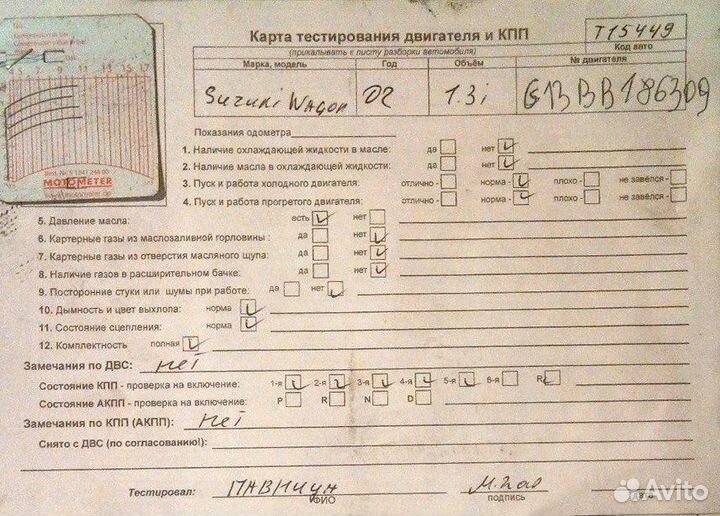 Карта тестирования двигателя и КПП
T15449
(прикалывать к листу разборки автомобиля)
Код авто
Марка, модель Год Объём № двигателя
Suzuki Wagon 02 1.3i G13BB186309
Показания одометра
1. Наличие охлаждающей жидкости в масле: да нет
2. Наличие масла в охлаждающей жидкости: да нет
3. Пуск и работа холодного двигателя: отлично - норма - плохо - не завёлся -
4. Пуск и работа прогретого двигателя: отлично - норма - плохо - не завёлся -
5. Давление масла: есть нет
6. Картерные газы из маслозаливной горловины : да нет
7. Картерные газы из отверстия масляного щупа: да нет
8. Наличие газов в расширительном бачке: да нет
9. Посторонние стуки или шумы при работе: да нет
10. Дымность и цвет выхлопа: норма
11. Состояние сцепления: норма
12. Комплектность полная
Замечания по ДВС: нет
Состояние КПП - проверка на включение: 1-я 2-я 3-я 4-я 5-я 6-я R
Состояние АКПП - проверка на включение: P R N D
Замечания по КПП (АКПП): нет
Снято с ДВС (по согласованию!):
Тестировал:
ФИО подпись дата
5 7 9 11 13 15 17
MOTOMETER
Avito